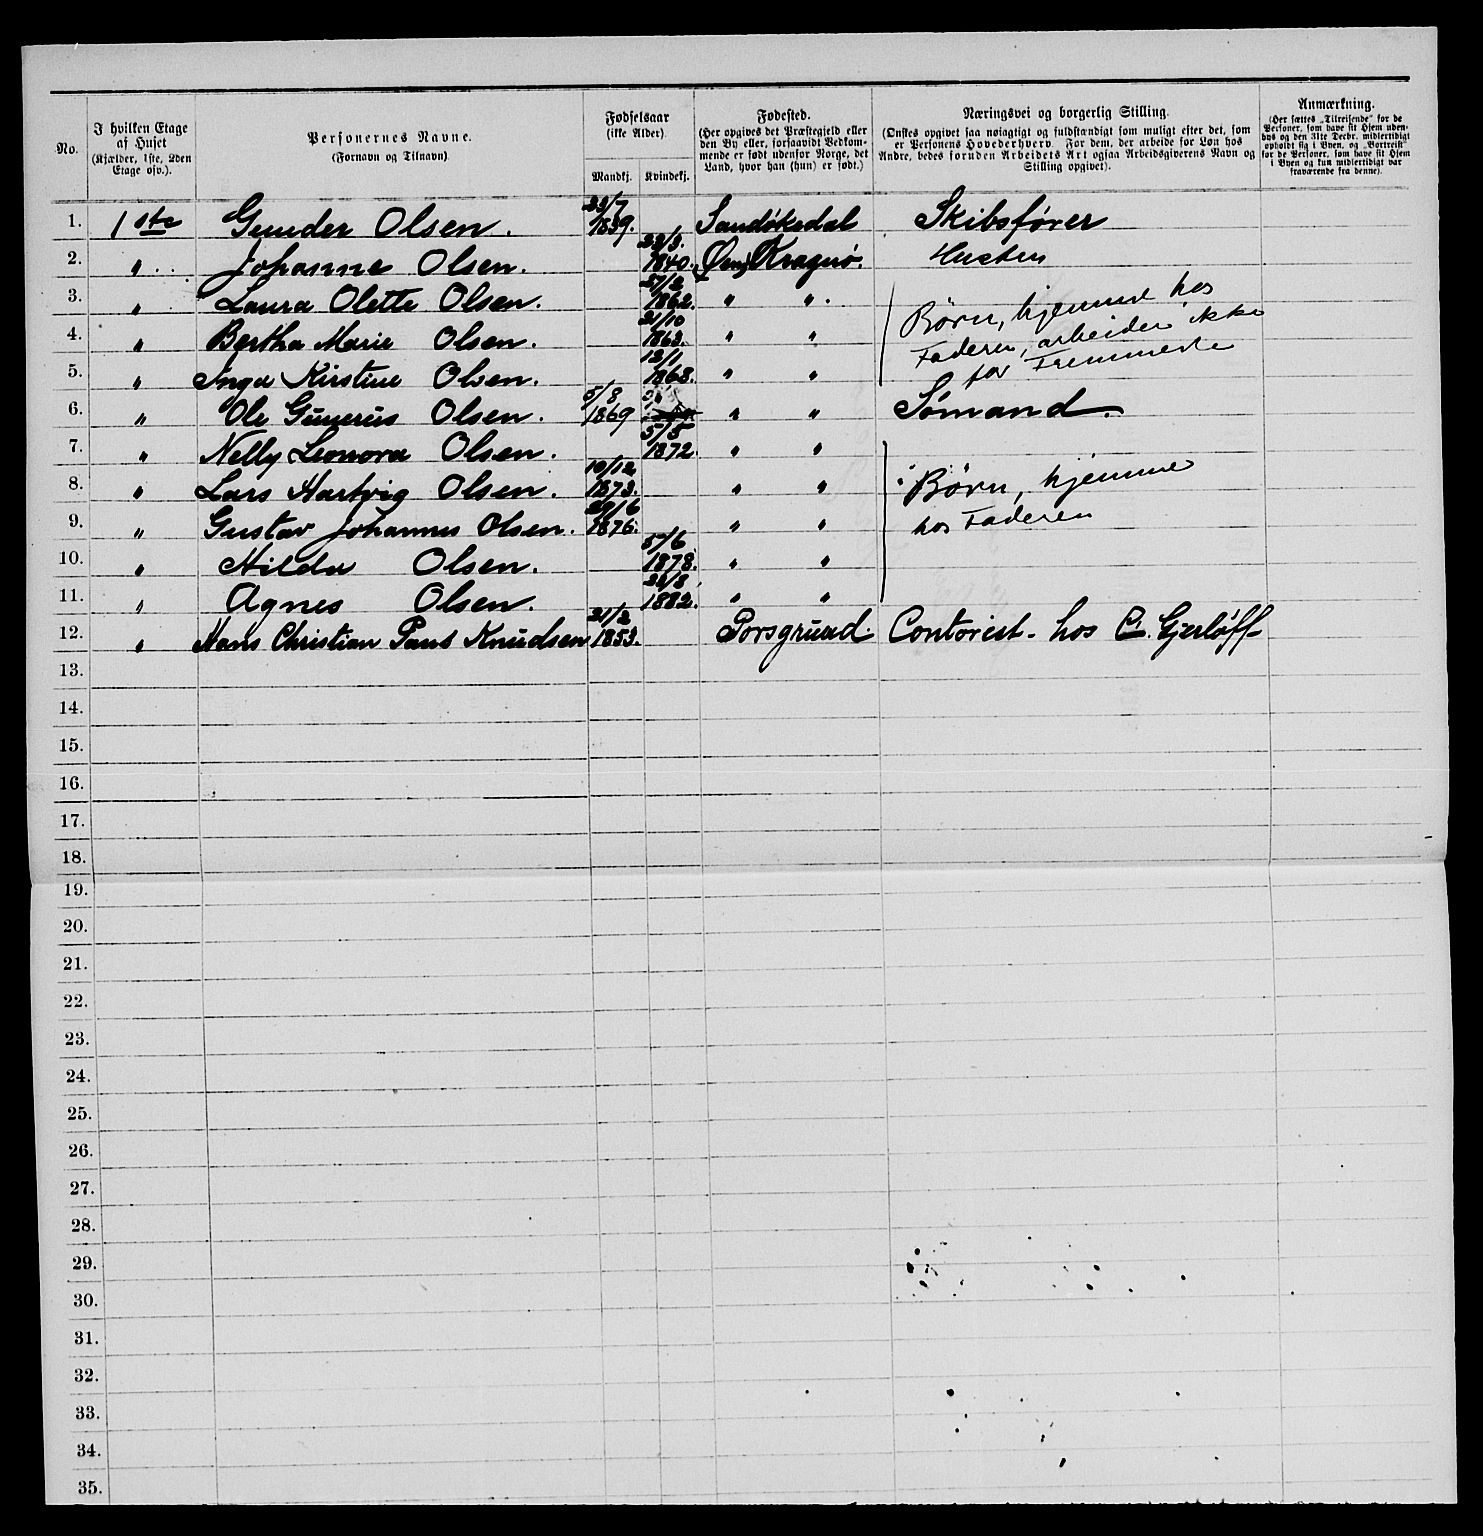 No.
I hvilken Etage af Huset (Kjælder, 1ste, 2den Etage osv.).
Personernes Navne. (Fornavn og Tilnavn)
Fødselsaar (ikke Alder). Mandkj. Kvindekj.
Fødested. (Her opgives det Præstegjeld eller den By eller, forsaavidt Bedkommende er født udenfor Norge, det Land, hvor han (hun) er født.)
Næringsvei og borgerlig Stilling. (Ønskes opgivet saa nøiagtigt og fuldstændigt som muligt efter det, som er Personens Hovederhverv. For dem, der arbeide for Løn hos Andre, bedes foruden Arbeidets Art ogsaa Arbeidsgiverens Navn og Stilling opgivet).
Anmærkning. (Her sættes „Tilreisende“ for de Personer, som have sit Hjem udenbys og den 31te Decbr. midlertidigt opholdt sig i Byen, og „Bortreist“ for de Personer, som have sit Hjem i Byen og kun midlertidigt var fraværende fra denne).
1. 1ste Gunder Olsen. 23/7 1839. Sandøkedal Skibsfører
2. " Johanne Olsen. 23/3. 1840. Kragerø. Hustru
3. " Laura Olette Olsen. 27/2 1862. " " Børn, hjemme hos
4. " Bertha Marie Olsen. 21/10 1863. " " Faderen, arbeider ikke
5. " Inga Kirstine Olsen. 12/1 1868. " " for Fremmede
6. " Ole Gunerius Olsen. 5/8 1869 " " Sømand.
7. " Nelly Leonora Olsen. 5/5 1872 " "
8. " Lars Hartvig Olsen. 10/12 1873. " " Børn, hjemme
9. " Gustav Johannes Olsen. 29/6 1876. " " hos Faderen
10. " Hilda Olsen. 5/6 1878. " "
11. " Agnes Olsen. 23/8 1882. " "
12. " Hans Christian Paus Knudsen 21/2 1853. Porsgrund. Contorist hos C. Gjerløff
13.
14.
15.
16.
17.
18.
19.
20.
21.
22.
23.
24.
25.
26.
27.
28.
29.
30.
31.
32.
33.
34.
35.